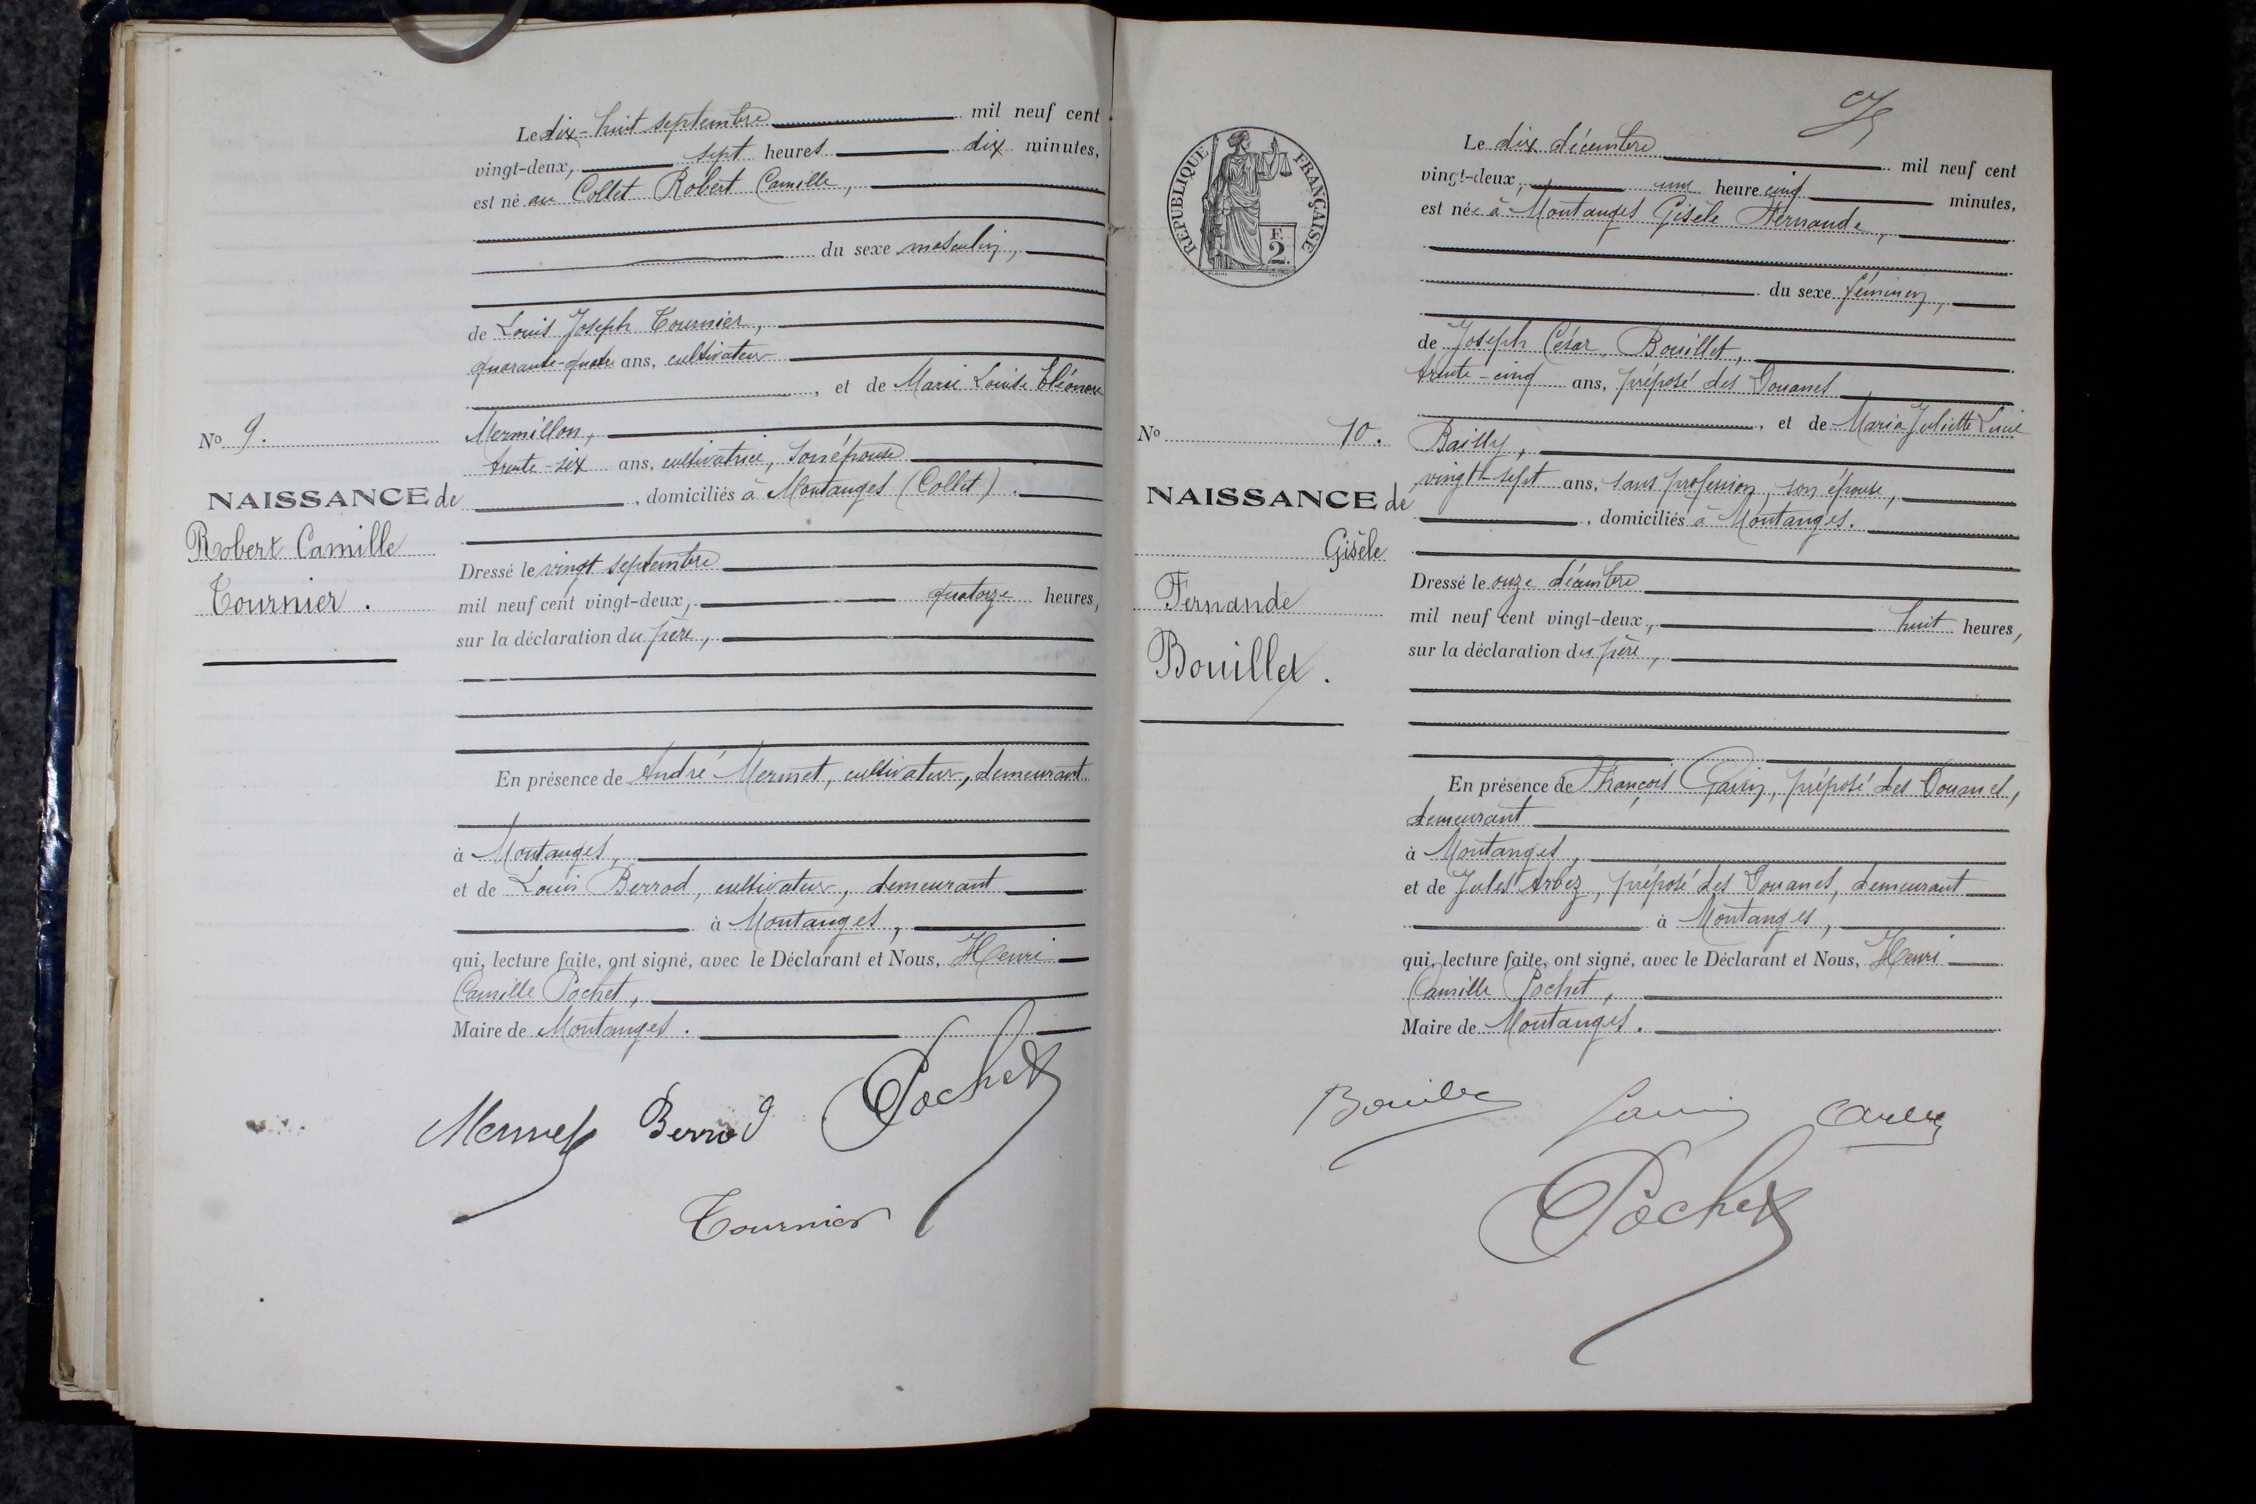 Le dix-huit septembre mil neuf cent
vingt-deux, sept heures dix minutes,
est né au Collet Robert Camille,
du sexe masculin,
de Louis Joseph Tournier,
quarante-quatre ans, cultivateur
, et de Marie Louise Eléonore
Mermillon,
trente-six ans, cultivatrice, son épouse
, domiciliés à Montanges (Collet).
Dressé le vingt septembre
mil neuf cent vingt-deux, quatorze heures,
sur la déclaration du père,
En présence de André Mermet, cultivateur, demeurant
à Montanges,
et de Louis Berrod, cultivateur, demeurant
à Montanges,
qui, lecture faite, ont signé, avec le Déclarant et Nous, Henri
Camille Pochet,
Maire de Montanges.
No 9.
NAISSANCE de
Robert Camille
Tournier.
Mermet Berrod Pochet
Tournier
RÉPUBLIQUE FRANÇAISE
F.
2.
Le dix décembre mil neuf cent
vingt-deux, une heure cinq minutes,
est née à Montanges Gisèle Fernande,
du sexe féminin,
de Joseph César Bouillet,
trente-cinq ans, préposé des Douanes
, et de Maria Juliette Lucie
Bailly,
vingt-sept ans, sans profession, son épouse,
, domiciliés à Montanges.
Dressé le onze décembre
mil neuf cent vingt-deux, huit heures,
sur la déclaration du père,
En présence de François Gavin, préposé des Douanes,
demeurant
à Montanges,
et de Jules Arbez, préposé des Douanes, demeurant
à Montanges,
qui, lecture faite, ont signé, avec le Déclarant et Nous, Henri
Camille Pochet,
Maire de Montanges.
No 10.
NAISSANCE de
Gisèle
Fernande
Bouillet.
Pochet